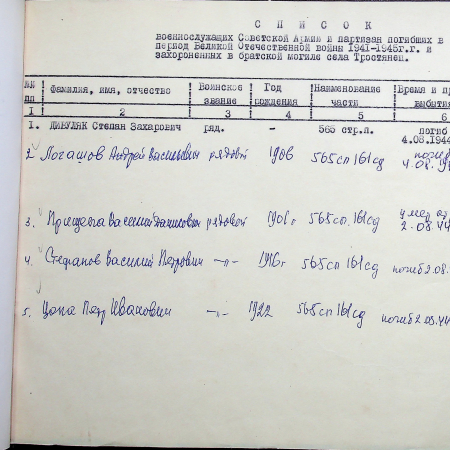 С П И С О К
военнослужащих Советской Армии и партизан погибших в
период Великой Отечественной войны 1941-1945г.г. и
захороненных в братской могиле села Тростянец.
№№ пп Фамилия, имя, отчество Воинское звание Год рождения Наименование части Время и пр выбытия
I 2 3 4 5 6
I. ДИВУЛЯК Степан Захарович ряд. - 565 стр.п. погиб 4.08.1944
2. Логашов Андрей Васильевич рядовой 1906 565сп 161сд погиб 4.08.194
3. Василий рядовой 1901г 565сп 161сд умер от 2.08.44
4. Стефанов Василий Петрович -"- 1916г 565сп 161сд погиб 2.08.
5. Цопа Петр Иванович -"- 1922 565сп 161сд погиб 2.08.44